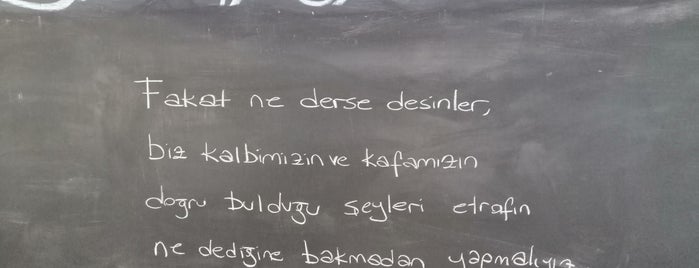 Fakat ne derse desinler,
biz kalbimizin ve kafamızın
doğru bulduğu şeyleri etrafın
ne dediğine bakmadan yapmalıyız